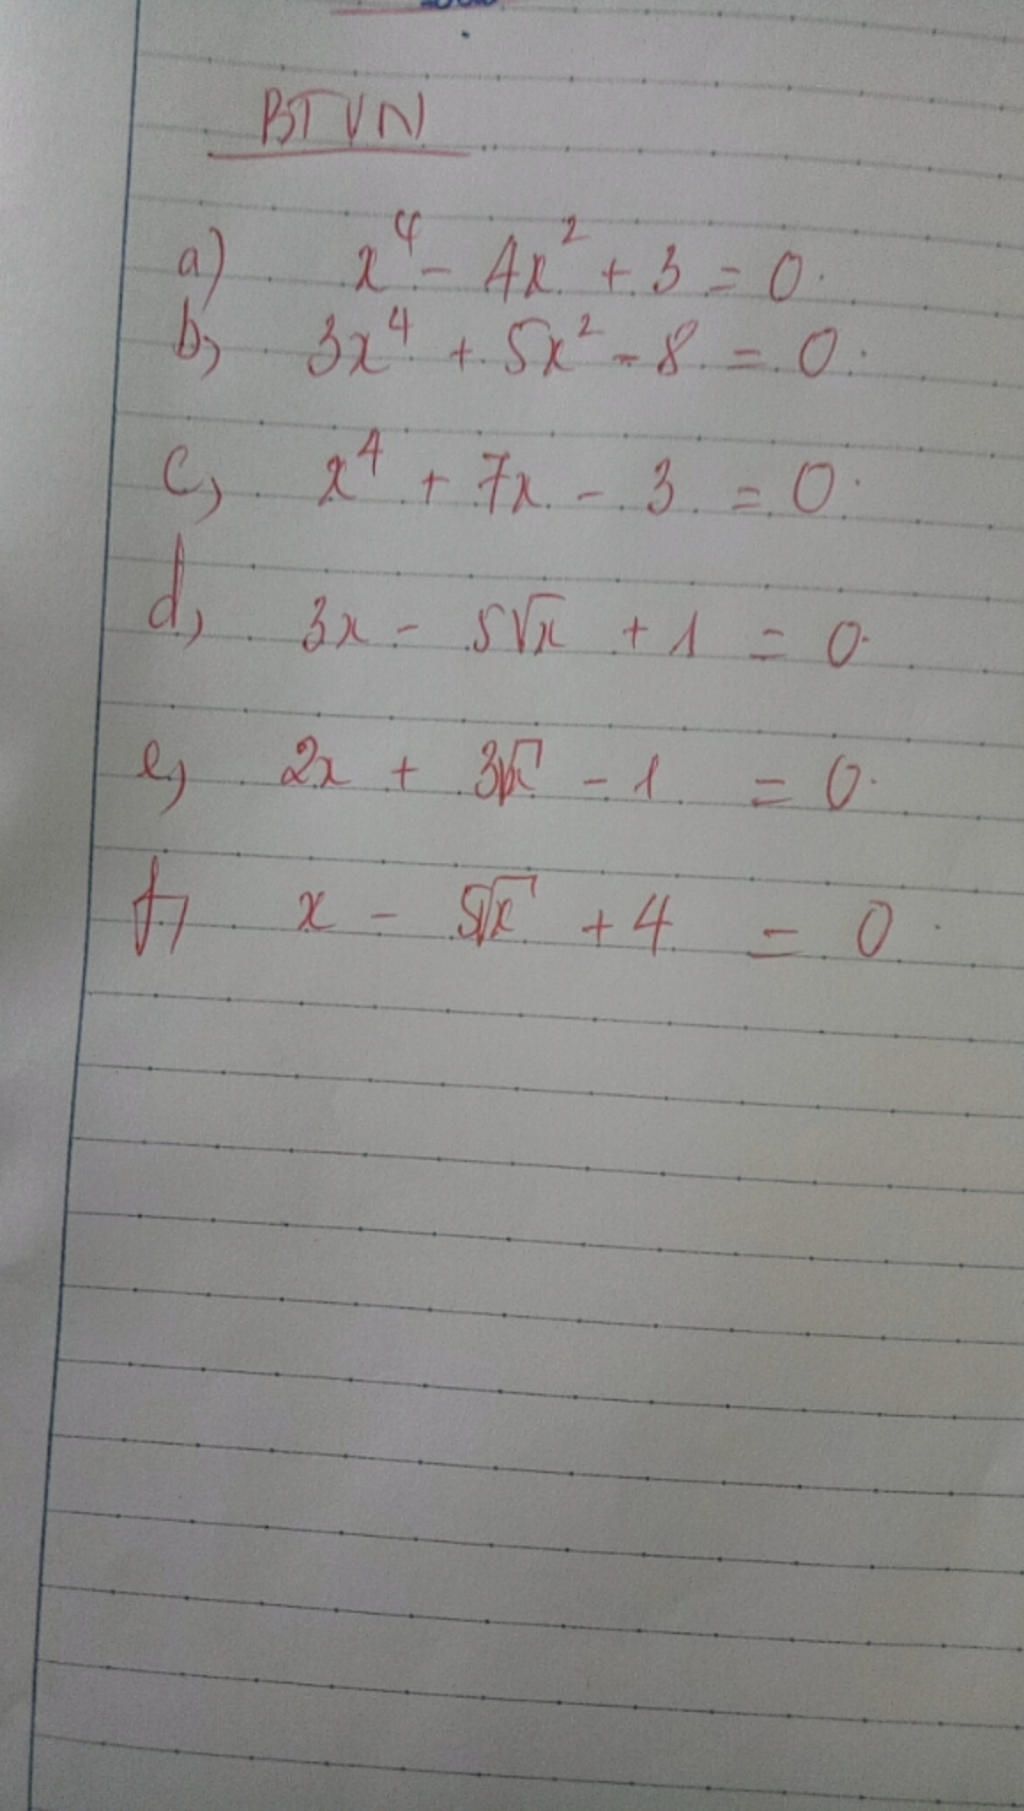 BTVN
a) x⁴ - 4x² + 3 = 0.
b, 3x⁴ + 5x² - 8 = 0.
c, x⁴ + 7x - 3 = 0.
d, 3x - 5√x + 1 = 0.
e, 2x + 3√x - 1 = 0.
f, x - 5√x + 4 = 0.